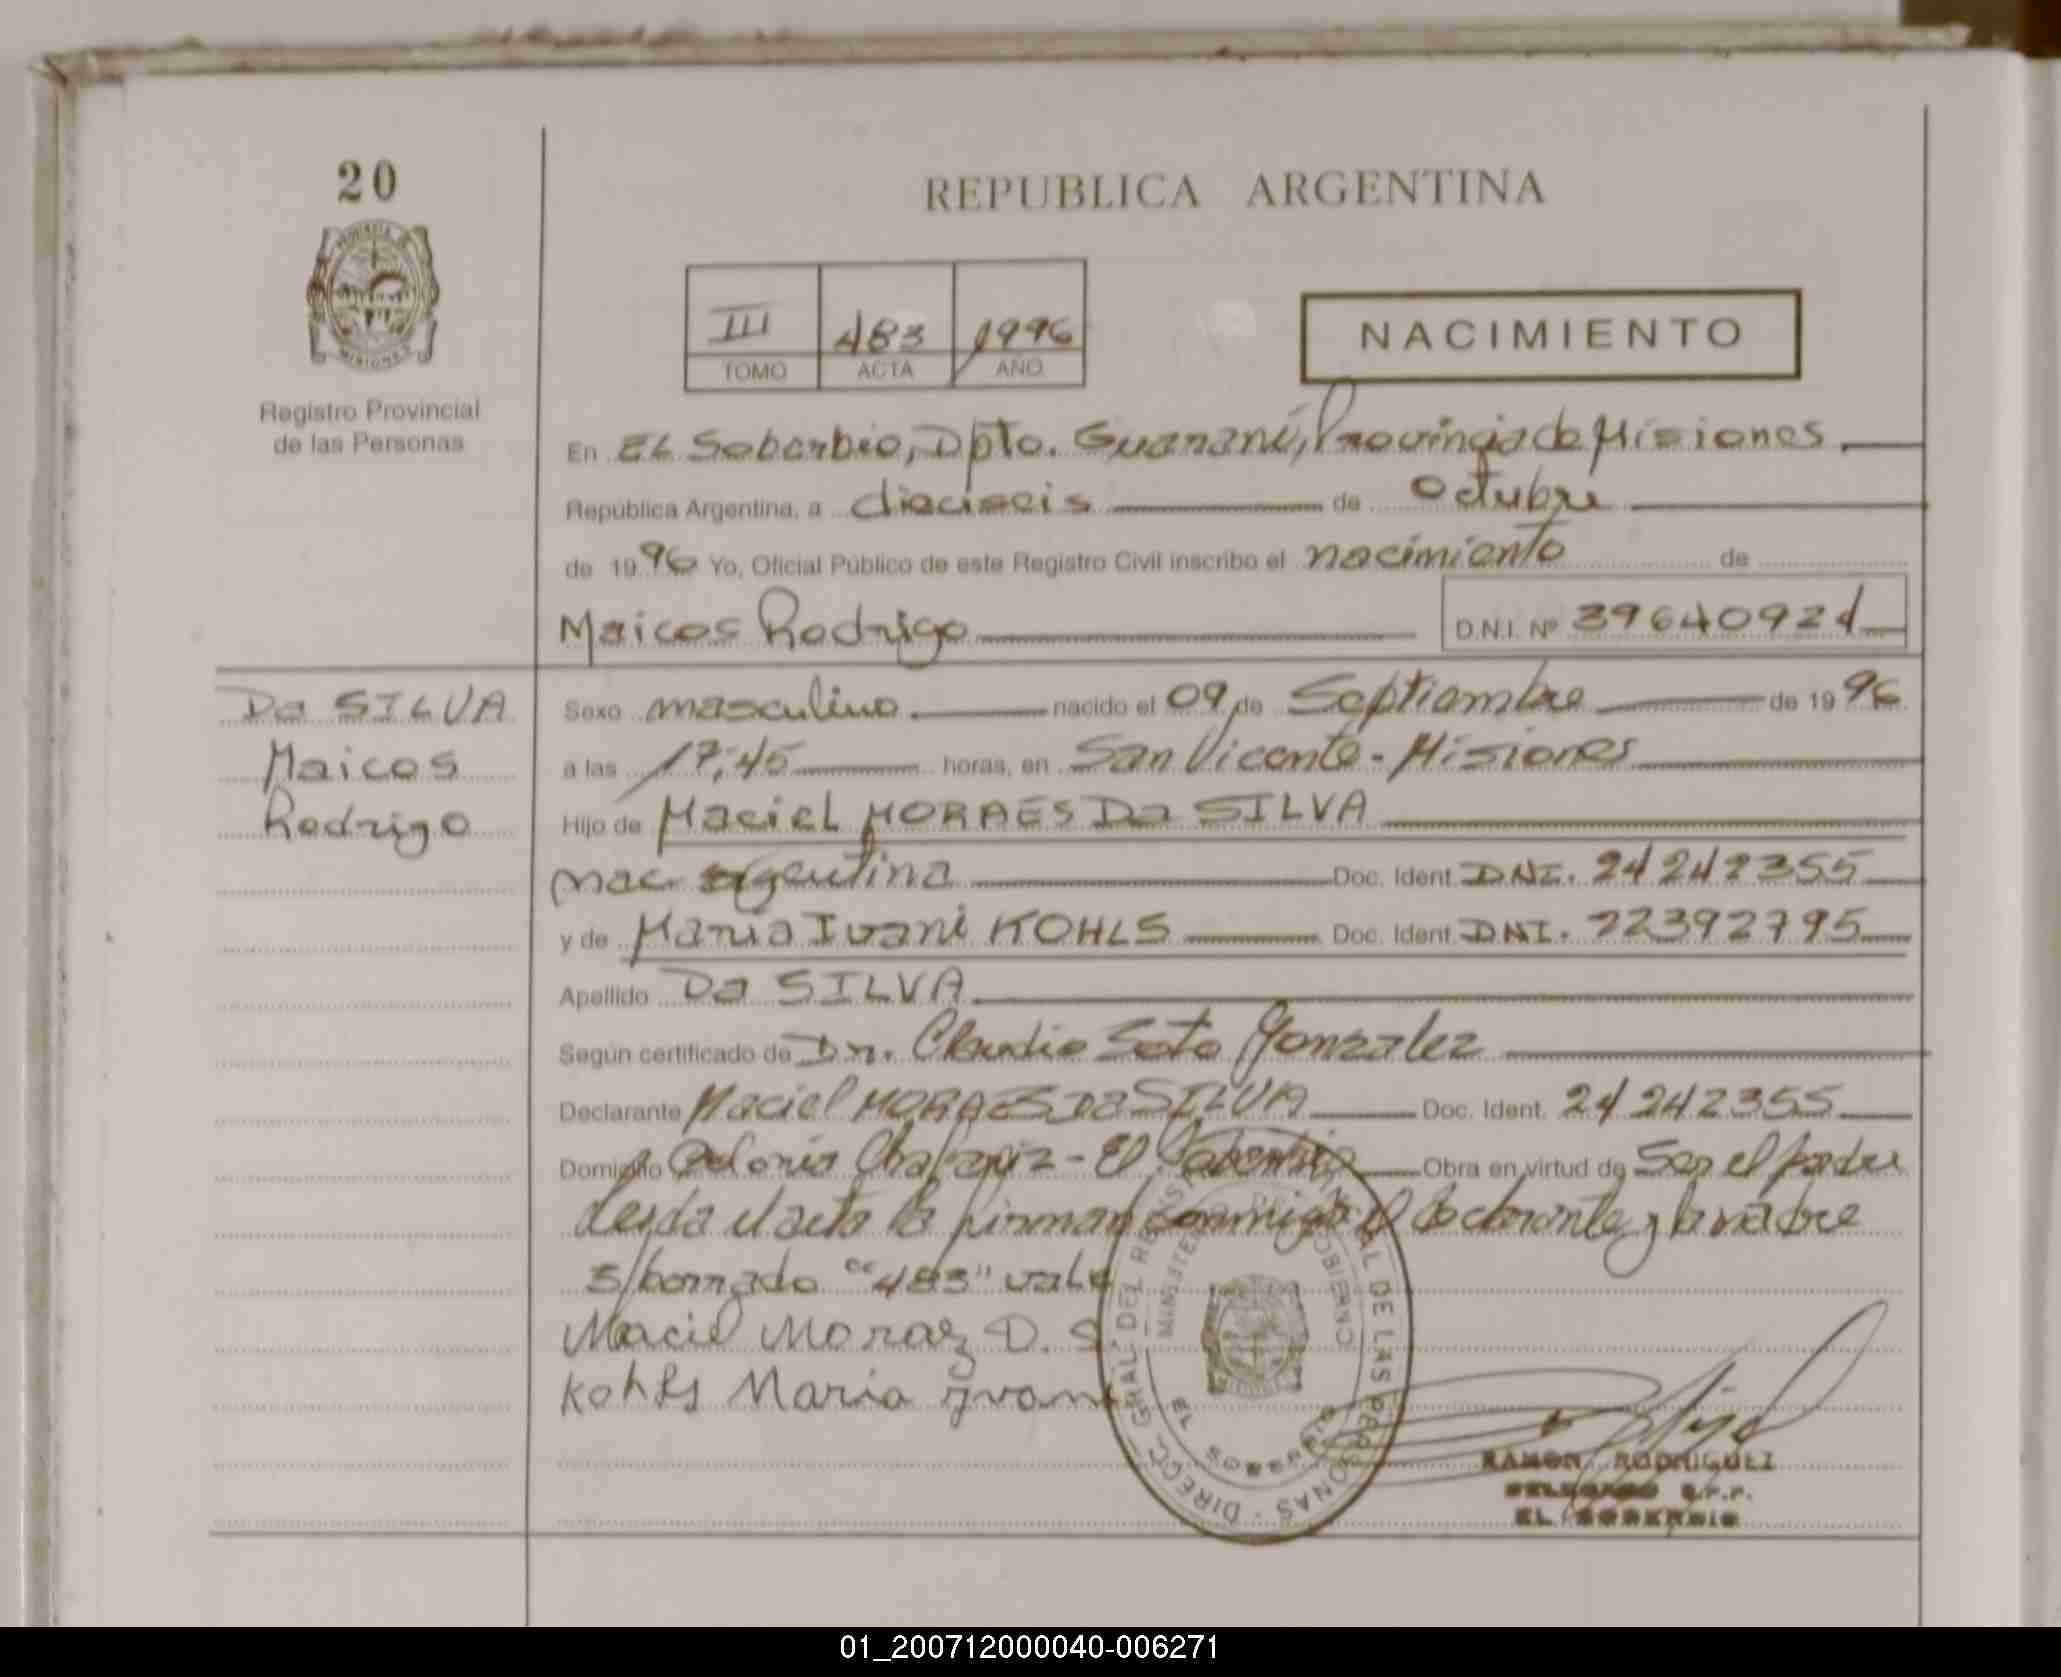 20
REPUBLICA ARGENTINA
III 483 1996
TOMO ACTA AÑO
NACIMIENTO
PROVINCIA DE MISIONES
Registro Provincial
de las Personas
En El Soberbio, Dpto. Guaraní, Provincia de Misiones
República Argentina, a dieciseis de Octubre
de 1996 Yo, Oficial Público de este Registro Civil inscribo el nacimiento de
Maicos Rodrigo D.N.I. Nº 39640921
Da SILVA
Maicos
Rodrigo
Sexo masculino nacido el 09 de Septiembre de 1996
a las 17,45 horas, en San Vicente - Misiones
Hijo de Maciel MORAES Da SILVA
nac. argentina Doc. Ident. DNI. 24242355
y de Maria Ivani KOHLS Doc. Ident. DNI. 22392795
Apellido Da SILVA
Según certificado de Dr. Claudio Soto Gonzalez
Declarante Maciel MORAES Da SILVA Doc. Ident. 24242355
Domicilio Colonia Chafariz - El Soberbio Obra en virtud de Ser el padre
Leida el acta la firman conmigo el declarante y la madre
S/borrado "483" vale
Maciel Moraez D. S
Kohls Maria Ivani
DIRECC. GRAL. DEL REGIST PROVINCIAL DE LAS PERSONAS
MINISTERIO DE GOBIERNO
SOBERBIO
RAMON RODRIGUEZ
DELEGADO R.P.P.
EL SOBERBIO
01_200712000040-006271